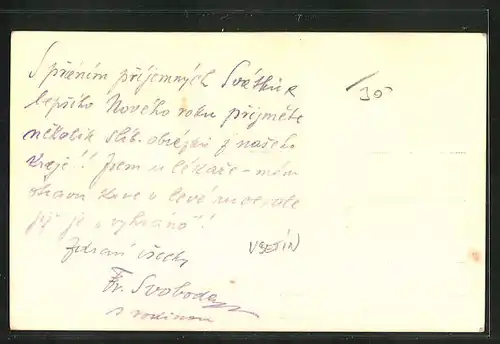 S přáním příjemných Svátků a
lepšího Nového roku přijměte
několik slíb. obrázků z našeho
kraje!! Jsem u lékaře – mám
otravu krve v levé noze ale
již je „vyhráno"!
Zdraví všechny
Fr. Svoboda
s rodinou
VSETÍN
30